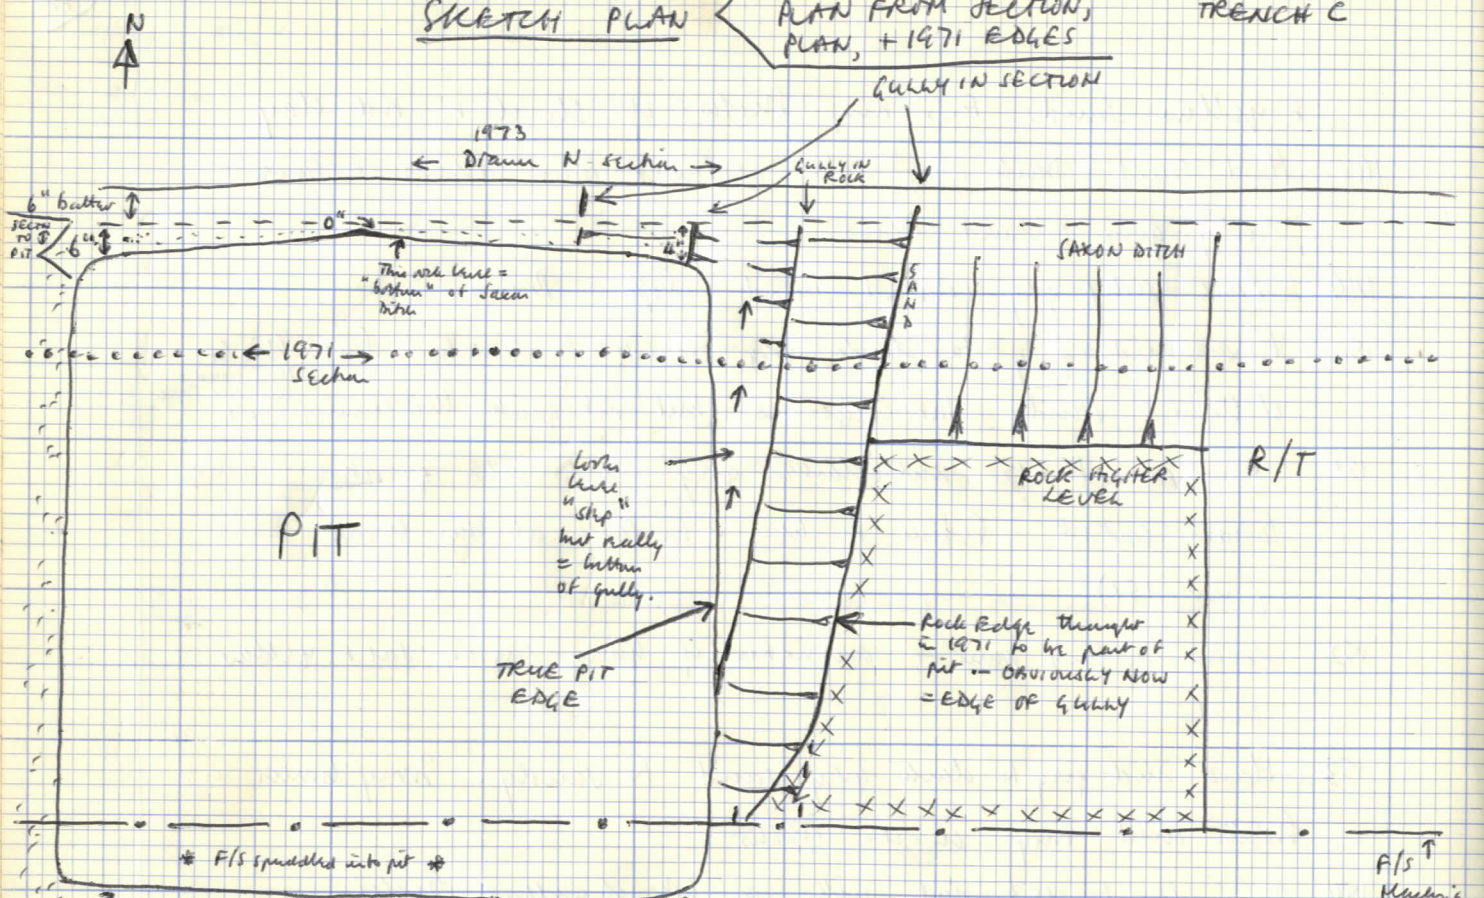 N
SKETCH PLAN
PLAN FROM SECTION,
PLAN, + 1971 EDGES
TRENCH C
GULLY IN SECTION
1973
Drawn N section
GULLY IN
ROCK
6" batter
SECTN
TO
PIT
6"
0"
4"
This rock level =
"bottom" of Saxon
Ditch
SAXON DITCH
SAND
1971
Section
R/T
ROCK HIGHER
LEVEL
Looks
like
"step"
but really
= bottom
of gully.
PIT
TRUE PIT
EDGE
Rock Edge thought
in 1971 to be part of
pit - OBVIOUSLY NOW
= EDGE OF GULLY
* F/S spuddled into pit *
F/S